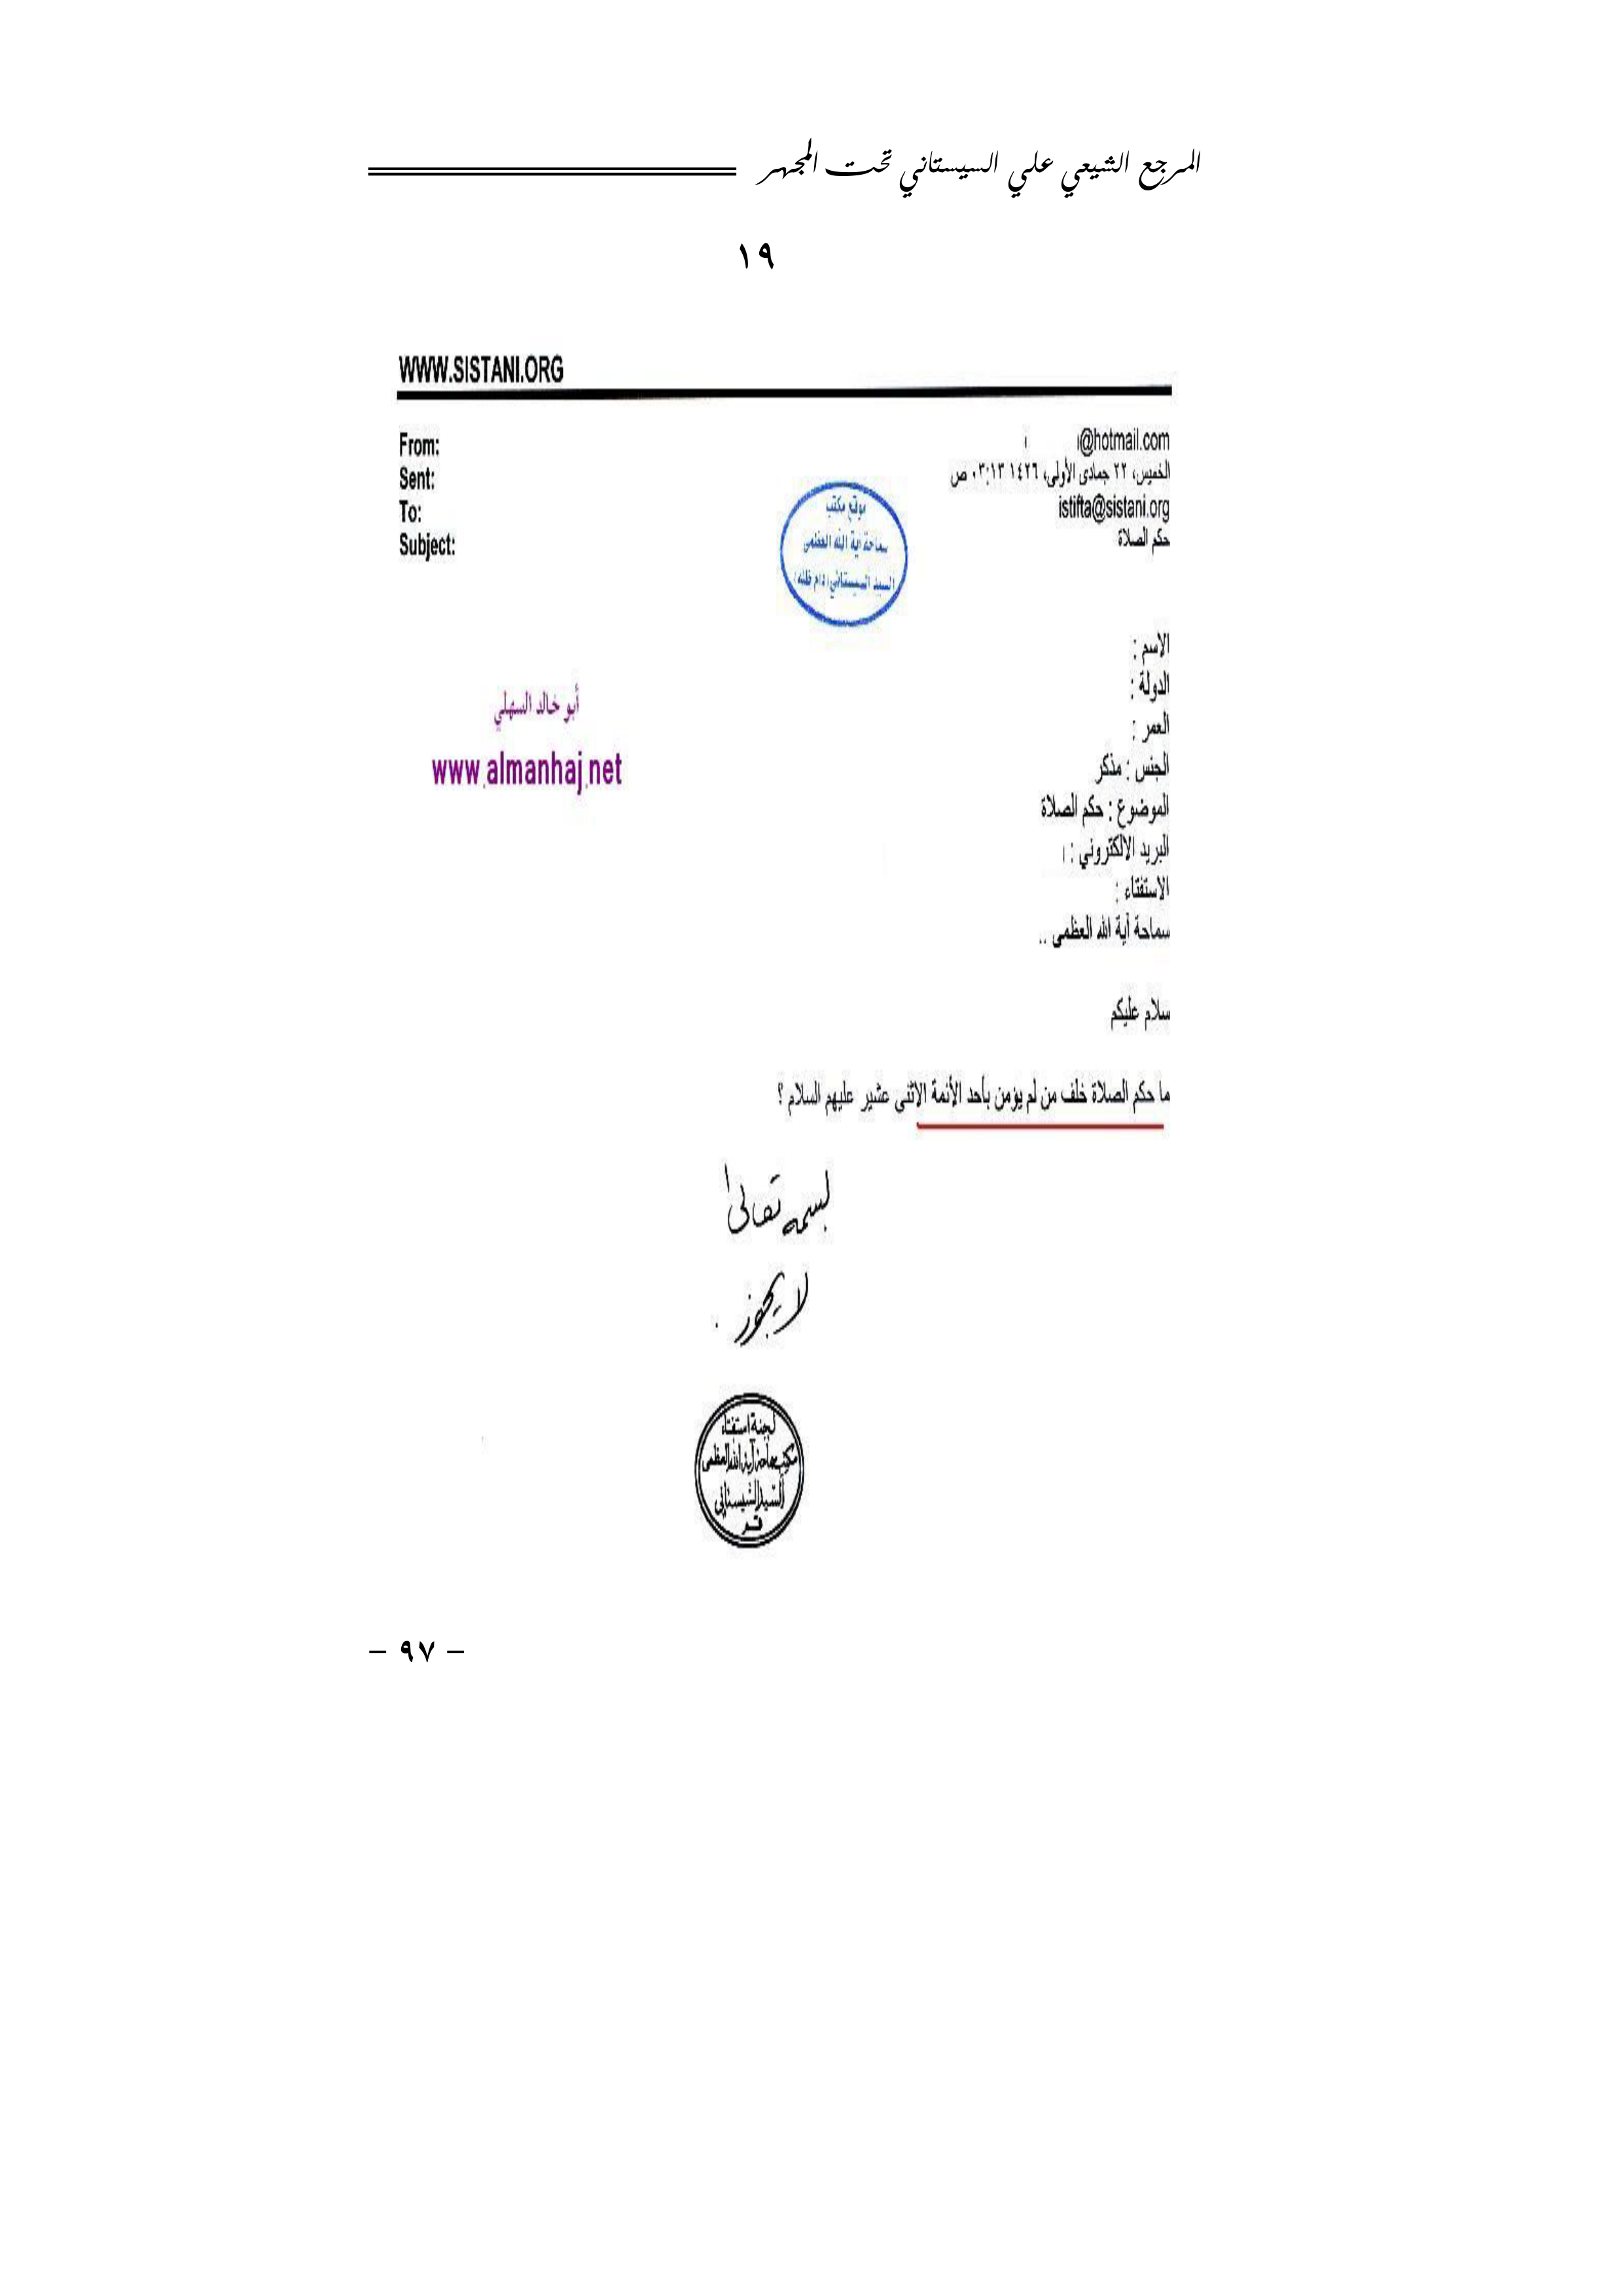 المرجع الشيعي علي السيستاني تحت المجهر
١٩
WWW.SISTANI.ORG
From: @hotmail.com
Sent: الخميس، ٢٢ جمادى الأولى، ١٤٢٦ ٠٣:١٣ ص
To: istifta@sistani.org
Subject: حكم الصلاة
موقع مكتب
سماحة آية الله العظمى
السيد السيستاني (دام ظله)
الاسم :
الدولة :
أبو خالد السهلي
العمر :
www.almanhaj.net
الجنس : مذكر
الموضوع : حكم الصلاة
البريد الالكتروني :
الاستفتاء :
سماحة آية الله العظمى ..
سلام عليكم
ما حكم الصلاة خلف من لم يؤمن بأحد الأئمة الاثنى عشير عليهم السلام ؟
بسمه تعالى
لا يجوز .
لجنة استفتاء
مكتب سماحة آية الله العظمى
السيد السيستاني
قم
- ٩٧ -